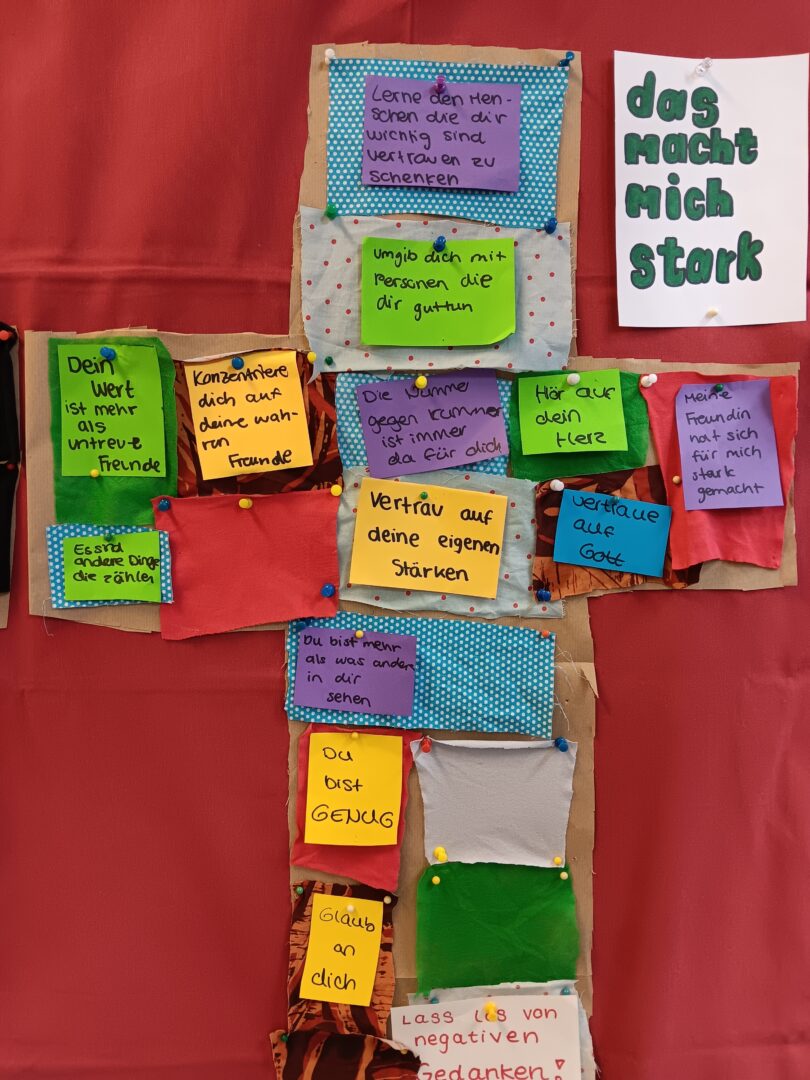 das
macht
mich
stark
Lerne den Men-
schen die dir
wichtig sind
vertrauen zu
schenken
Umgib dich mit
Personen die
dir guttun
Dein
Wert
ist mehr
als
untreue
Freunde
Konzentriere
dich auf
deine wah-
ren
Freunde
Die Nummer
gegen Kummer
ist immer
da für dich
Hör auf
dein
Herz
Meine
Freundin
hat sich
für mich
stark
gemacht
Es sind
andere Dinge
die zählen
Vertrau auf
deine eigenen
Stärken
Vertraue
auf
Gott
Du bist mehr
als was andere
in dir
sehen
Du
bist
GENUG
Glaub
an
dich
Lass los von
negativen
Gedanken!